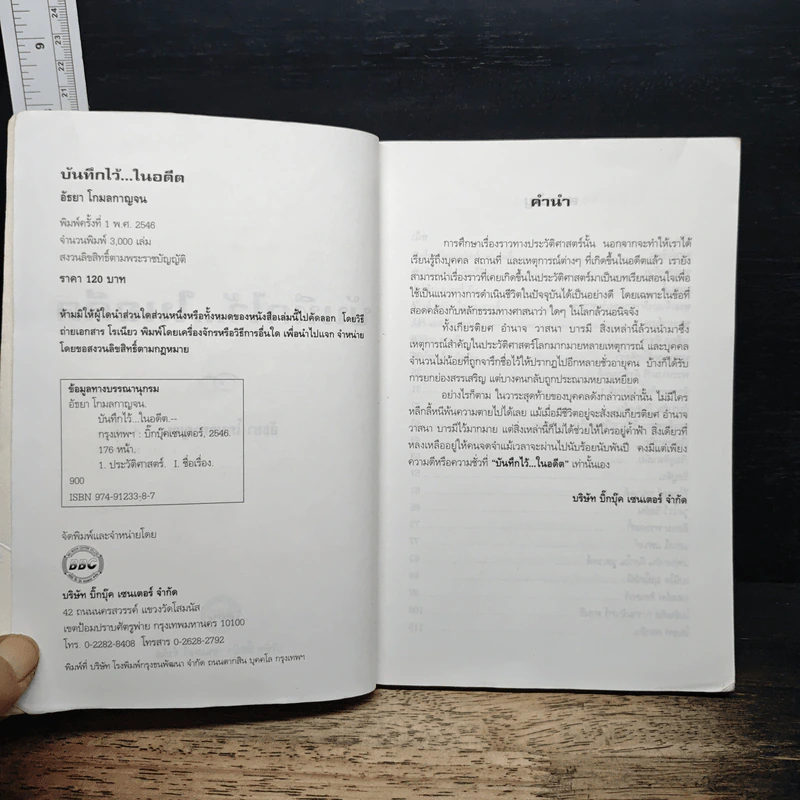 บันทึกไว้...ในอดีต
อัธยา โกมลกาญจน
พิมพ์ครั้งที่ 1 พ.ศ. 2546
จำนวนพิมพ์ 3,000 เล่ม
สงวนลิขสิทธิ์ตามพระราชบัญญัติ
ราคา 120 บาท
ห้ามมิให้ผู้ใดนำส่วนใดส่วนหนึ่งหรือทั้งหมดของหนังสือเล่มนี้ไปคัดลอก โดยวิธี
ถ่ายเอกสาร โรเนียว พิมพ์โดยเครื่องจักรหรือวิธีการอื่นใด เพื่อนำไปแจก จำหน่าย
โดยขอสงวนลิขสิทธิ์ตามกฎหมาย
ข้อมูลทางบรรณานุกรม
อัธยา โกมลกาญจน.
บันทึกไว้...ในอดีต.--
กรุงเทพฯ : บิ๊กบุ๊คเซนเตอร์, 2546.
176 หน้า.
1. ประวัติศาสตร์. I. ชื่อเรื่อง.
900
ISBN 974-91233-8-7
จัดพิมพ์และจำหน่ายโดย
BBC
บริษัท บิ๊กบุ๊ค เซนเตอร์ จำกัด
42 ถนนนครสวรรค์ แขวงวัดโสมนัส
เขตป้อมปราบศัตรูพ่าย กรุงเทพมหานคร 10100
โทร. 0-2282-8408 โทรสาร 0-2628-2792
พิมพ์ที่ บริษัท โรงพิมพ์กรุงธนพัฒนา จำกัด ถนนตากสิน บุคคโล กรุงเทพฯ
คำนำ
การศึกษาเรื่องราวทางประวัติศาสตร์นั้น นอกจากจะทำให้เราได้
เรียนรู้ถึงบุคคล สถานที่ และเหตุการณ์ต่างๆ ที่เกิดขึ้นในอดีตแล้ว เรายัง
สามารถนำเรื่องราวที่เคยเกิดขึ้นในประวัติศาสตร์มาเป็นบทเรียนสอนใจเพื่อ
ใช้เป็นแนวทางการดำเนินชีวิตในปัจจุบันได้เป็นอย่างดี โดยเฉพาะในข้อที่
สอดคล้องกับหลักธรรมทางศาสนาว่า ใดๆ ในโลกล้วนอนิจจัง
ทั้งเกียรติยศ อำนาจ วาสนา บารมี สิ่งเหล่านี้ล้วนนำมาซึ่ง
เหตุการณ์สำคัญในประวัติศาสตร์โลกมากมายหลายเหตุการณ์ และบุคคล
จำนวนไม่น้อยที่ถูกจารึกชื่อไว้ให้ปรากฏไปอีกหลายชั่วอายุคน บ้างก็ได้รับ
การยกย่องสรรเสริญ แต่บางคนกลับถูกประณามหยามเหยียด
อย่างไรก็ตาม ในวาระสุดท้ายของบุคคลดังกล่าวเหล่านั้น ไม่มีใคร
หลีกลี้หนีพ้นความตายไปได้เลย แม้เมื่อมีชีวิตอยู่จะสั่งสมเกียรติยศ อำนาจ
วาสนา บารมีไว้มากมาย แต่สิ่งเหล่านี้ก็ไม่ได้ช่วยให้ใครอยู่ค้ำฟ้า สิ่งเดียวที่
หลงเหลืออยู่ให้คนจดจำแม้เวลาจะผ่านไปนับร้อยนับพันปี คงมีแต่เพียง
ความดีหรือความชั่วที่ "บันทึกไว้...ในอดีต" เท่านั้นเอง
บริษัท บิ๊กบุ๊ค เซนเตอร์ จำกัด